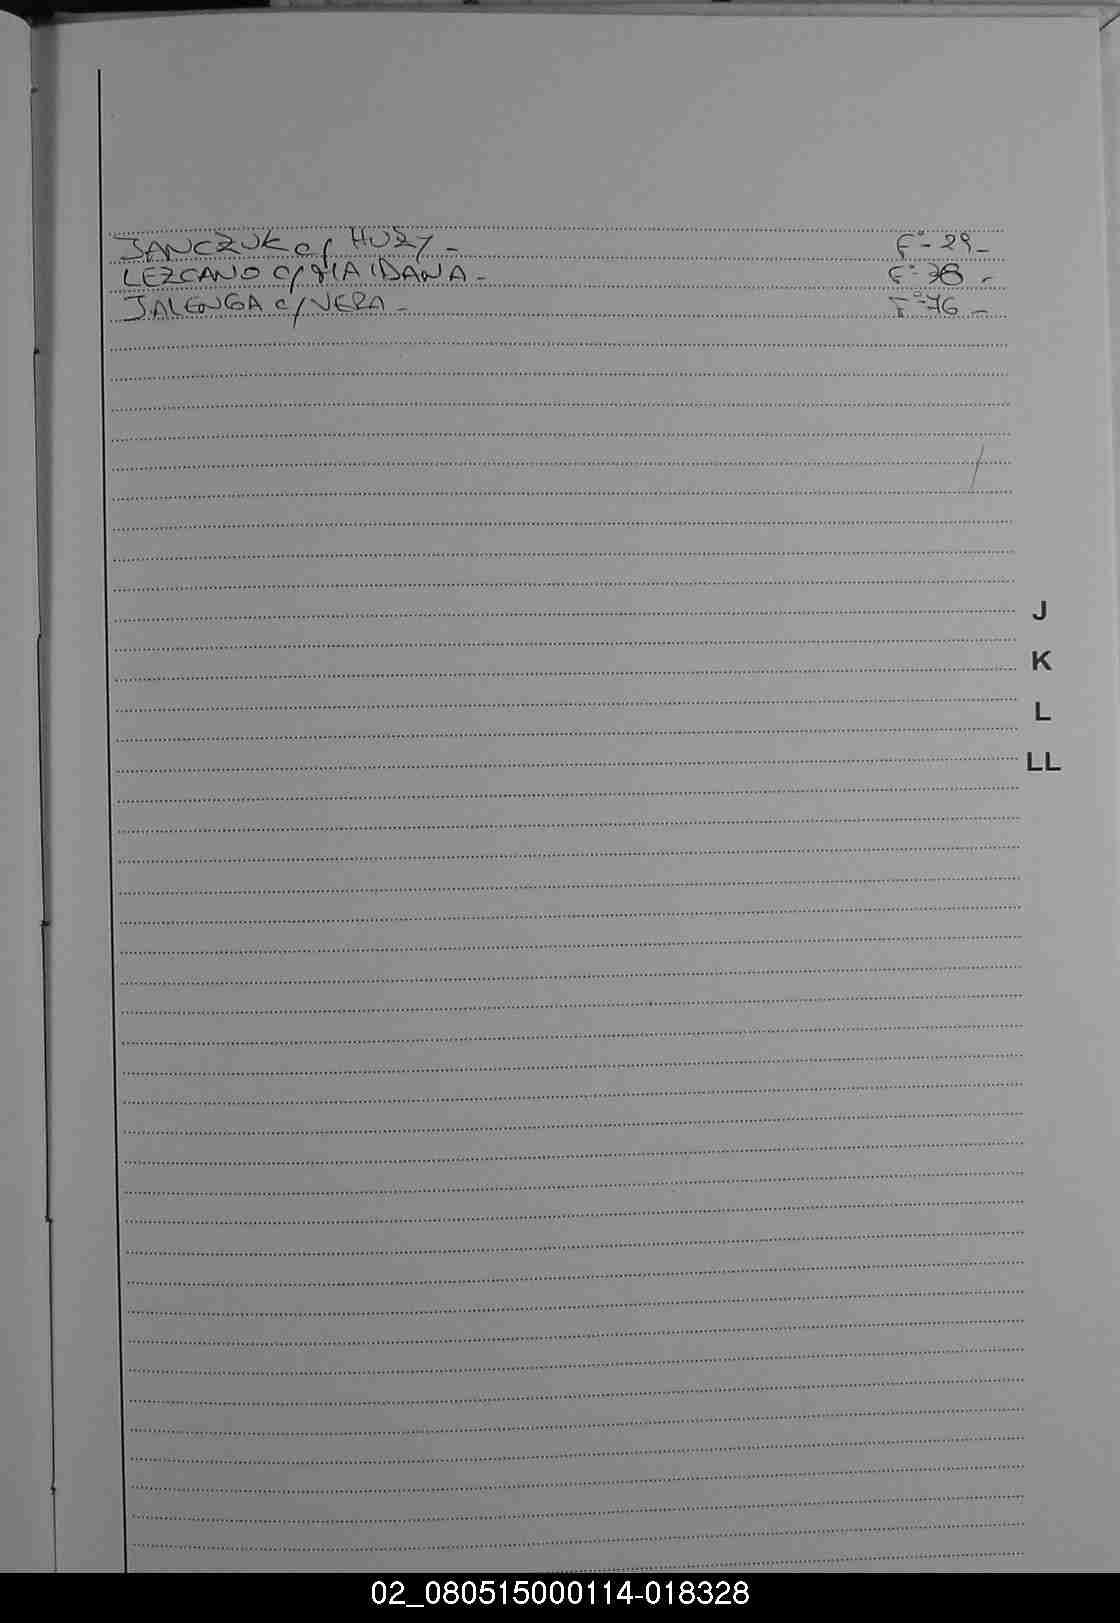 JANCZUK c/ HUZY - F° - 29 -
LEZCANO c/ MAIDANA - F° 38 -
JALENGA c/ VERA - F° 76 -
J
K
L
LL
02_080515000114-018328